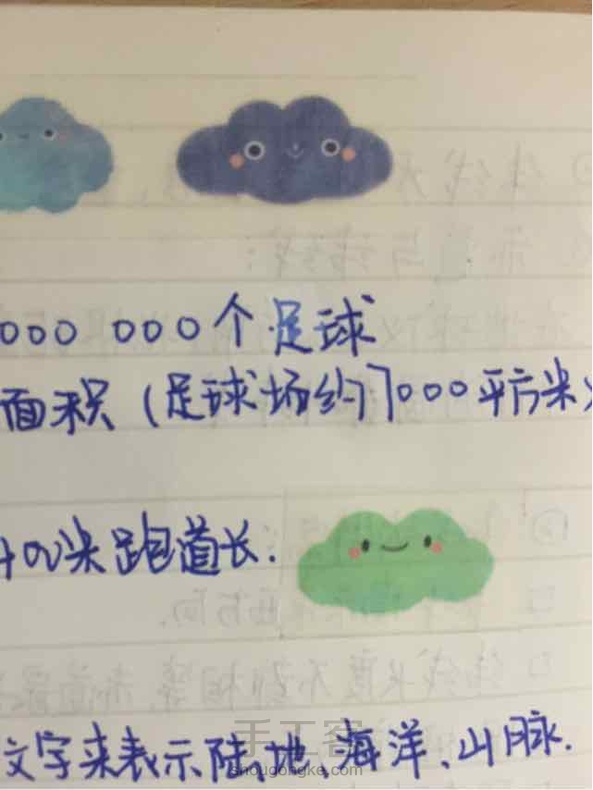 000 000个足球
面积（足球场约7000平方米）
400米跑道长.
文字来表示陆地、海洋、山脉.
手工客
shougongke.com